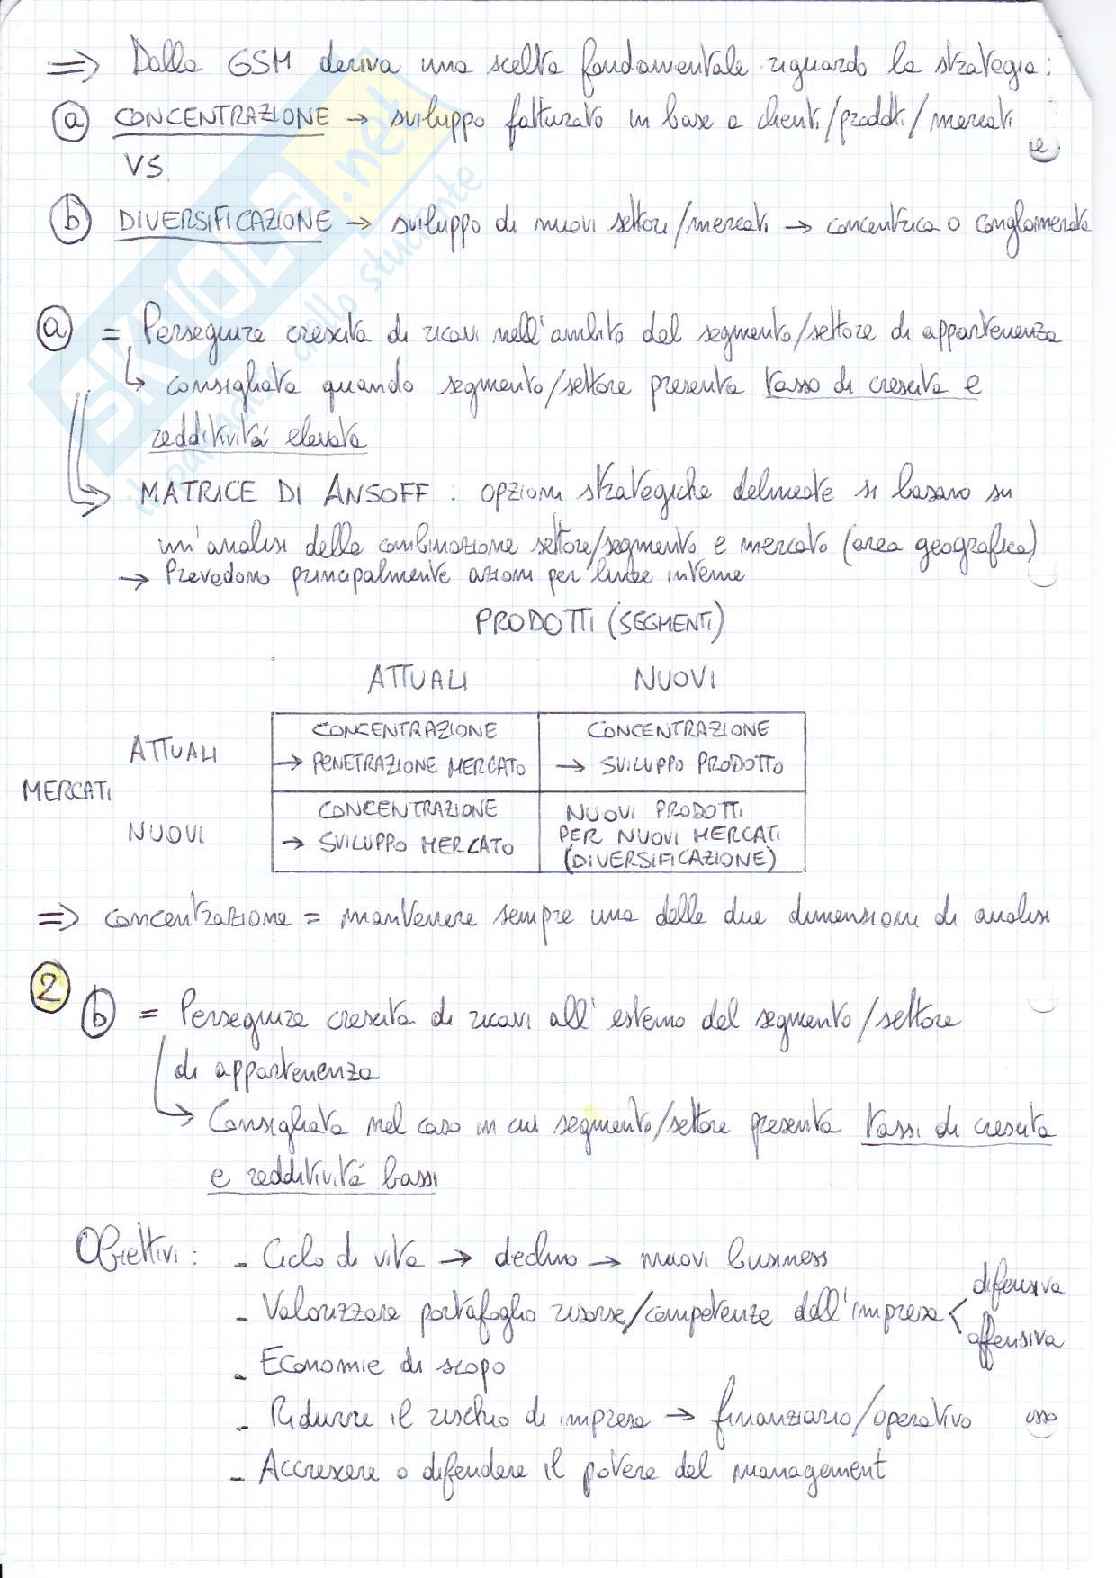 => Dalla GSM deriva una scelta fondamentale riguardo la strategia:
(a) CONCENTRAZIONE → sviluppo fatturato in base a clienti/prodotti/mercati
VS.
(b) DIVERSIFICAZIONE → sviluppo di nuovi settori/mercati → concentrica o conglomerata
(a) = Perseguire crescita di ricavi nell'ambito del segmento/settore di appartenenza
↳ consigliata quando segmento/settore presenta tasso di crescita e
redditività elevata
MATRICE DI ANSOFF : opzioni strategiche delineate si basano su
un'analisi della combinazione settore/segmento e mercato (area geografica)
→ Prevedono principalmente azioni per linee interne
PRODOTTI (SEGMENTI)
ATTUALI NUOVI
MERCATI
ATTUALI
CONCENTRAZIONE
→ PENETRAZIONE MERCATO
CONCENTRAZIONE
→ SVILUPPO PRODOTTO
NUOVI
CONCENTRAZIONE
→ SVILUPPO MERCATO
NUOVI PRODOTTI
PER NUOVI MERCATI
(DIVERSIFICAZIONE)
=> concentrazione = mantenere sempre una delle due dimensioni di analisi
2
(b) = Perseguire crescita di ricavi all'esterno del segmento/settore
di appartenenza
↳ Consigliata nel caso in cui segmento/settore presenta tassi di crescita
e redditività bassi
Obiettivi: - Ciclo di vita → declino → nuovi business
- Valorizzare portafoglio risorse/competenze dell'impresa < difensiva
offensiva
- Economie di scopo
- Ridurre il rischio di impresa → finanziario/operativo
- Accrescere o difendere il potere del management
SKUOLA.net